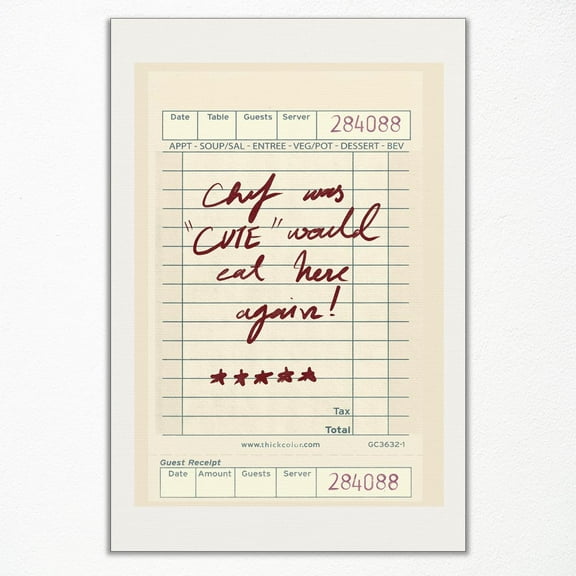 Date Table Guests Server 284088
APPT - SOUP/SAL - ENTREE - VEG/POT - DESSERT - BEV
Chef was
"CUTE" would
eat here
again!
★★★★★
Tax
Total
www.thickcolor.com GC3632-1
Guest Receipt
Date Amount Guests Server 284088